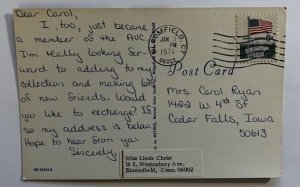 Dear Carol,
I too, just became
a member of the AVC.
I'm really looking for-
ward to adding to my
collection and making lots
of new friends. Would you
like to exchange? If
so my address is below.
Hope to hear from you.
Sincerely,
Miss Linda Christ
18 E. Wintonbury Ave.
Bloomfield, Conn. 06002
BLOOMFIELD, C
JAN
PM
1974
06002
Post Card
Mrs. Carol Ryan
1422 W. 4th St.
Cedar Falls, Iowa
50613